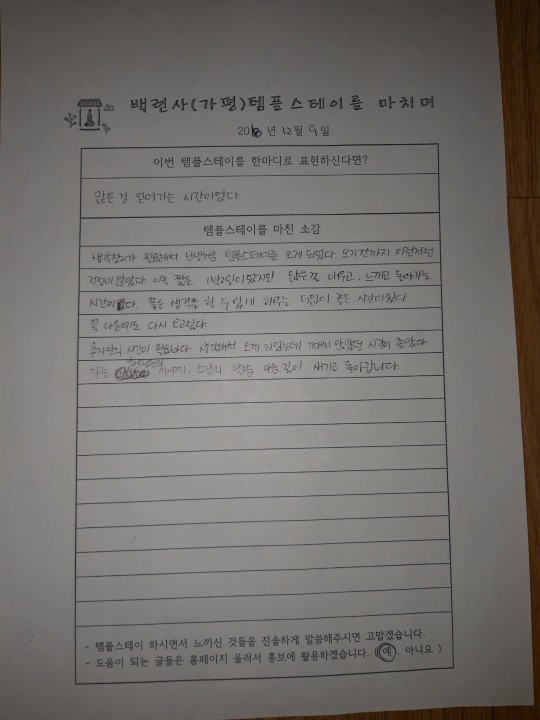 백련사(가평)템플스테이를 마치며
2018년 12월 9일
이번 템플스테이를 한마디로 표현하신다면?
많은 걸 얻어가는 시간이었다.
템플스테이를 마친 소감
생각정리가 필요해서 난생처음 템플스테이를 오게 되었다. 오기전까지 이런저런
걱정이 많았다. 비록 짧은 1박2일이었지만 많은걸 배우고, 느끼고 돌아가는
시간이다. 좋은 생각을 할 수 있게 해주는 더없이 좋은 시간이었다
꼭 다음에도 다시 오고싶다.
혼자만의 시간이 필요하다 생각해서 오게 되었는데 기대치 않았던 시간이 좋았다
다른 이야기, 스님의 말씀, 마음 깊이 새기고 돌아갑니다
- 템플스테이 하시면서 느끼신 것들을 진솔하게 말씀해주시면 고맙겠습니다.
- 도움이 되는 글들은 홈페이지 올려서 홍보에 활용하겠습니다. (예, 아니요 )